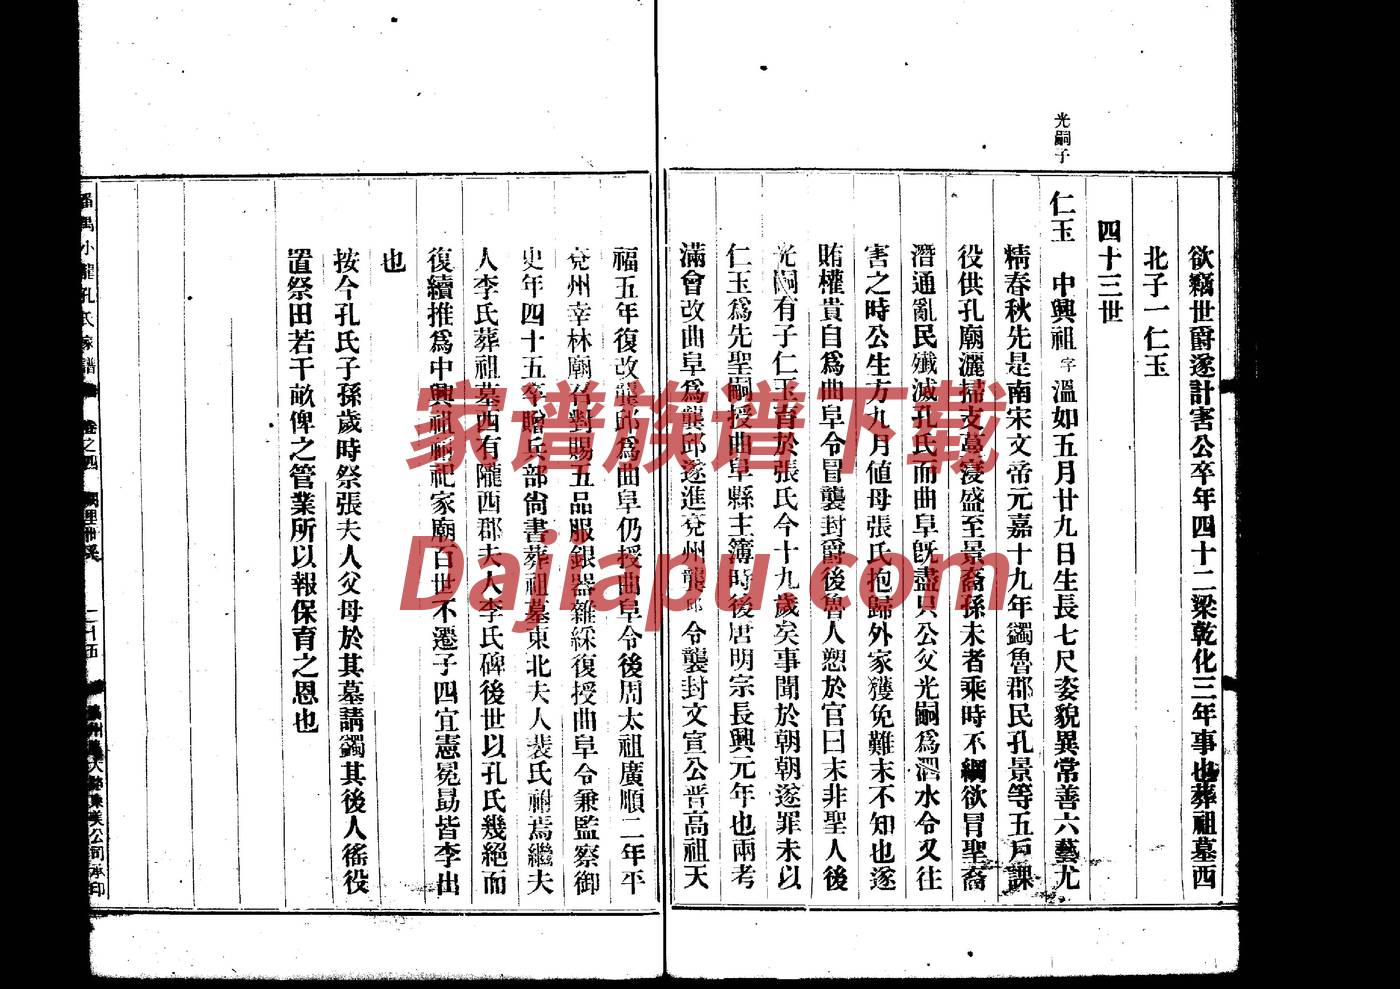 欲竊世爵遂計害公卒年四十二梁乾化三年事也葬祖墓西
北子一仁玉
四十三世
光嗣子
仁玉 中興祖字溫如五月廿九日生長七尺姿貌異常善六藝尤
精春秋先是南宋文帝元嘉十九年蠲魯郡民孔景等五戶課
役供孔廟灑掃支蔓寖盛至景裔孫末者乘時不綱欲冒聖裔
潛通亂民殲滅孔氏而曲阜旣盡只公父光嗣爲泗水令又往
害之時公生方九月値母張氏抱歸外家獲免難末不知也遂
賄權貴自爲曲阜令冒襲封爵後魯人愬於官曰末非聖人後
光嗣有子仁玉育於張氏今十九歲矣事聞於朝朝遂罪末以
仁玉爲先聖嗣授曲阜縣主簿時後唐明宗長興元年也兩考
滿會改曲阜爲龔邱遂進兗州龔邱令襲封文宣公晋高祖天
福五年復改龔邱爲曲阜仍授曲阜令後周太祖廣順二年平
兗州幸林廟召對賜五品服銀器雜綵復授曲阜令兼監察御
史年四十五卒贈兵部尙書葬祖墓東北夫人裴氏祔焉繼夫
人李氏葬祖墓西有隴西郡夫人李氏碑後世以孔氏幾絕而
復續推爲中興祖祠祀家廟百世不遷子四宜憲冕勗皆李出
也
按今孔氏子孫歲時祭張夫人父母於其墓請蠲其後人徭役
置祭田若干畝俾之管業所以報保育之恩也
番禺小龍孔氏家譜 卷之四
家谱族谱下载
Dajiapu.com